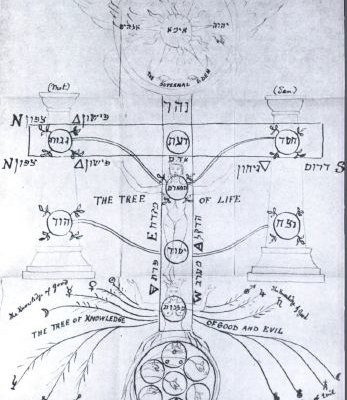 אימא
THE SUPERNAL EDEN
נהר
(Nut)
(Sun)
N צפון
פישון
גבורה
דעת
חסד
אדם
N צפון
פישון
גיחון
דרום S
תפארת
THE TREE OF LIFE
הוד
נצח
E מזרח
הדקל
יסוד
פרת
W מערב
מלכות
The Knowledge of good
The Knowledge of Good
THE TREE OF KNOWLEDGE
OF GOOD AND EVIL
Evil